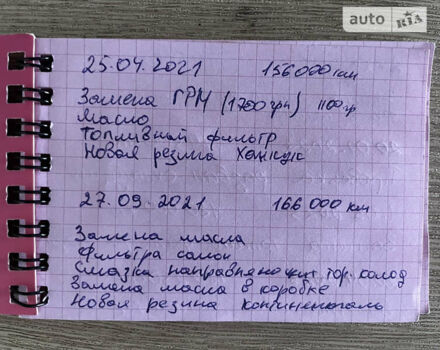 auto RIA
25.04.2021 156000 км
Замена ГРМ (1700 грн) 1100 гр
Масло
Топливный фильтр
Новая резина Ханкук
27.09.2021 166 000 км
Замена масла
Фильтра салон
Смазка направляющих тор. колод
Замена масла в коробке
Новая резина континенталь